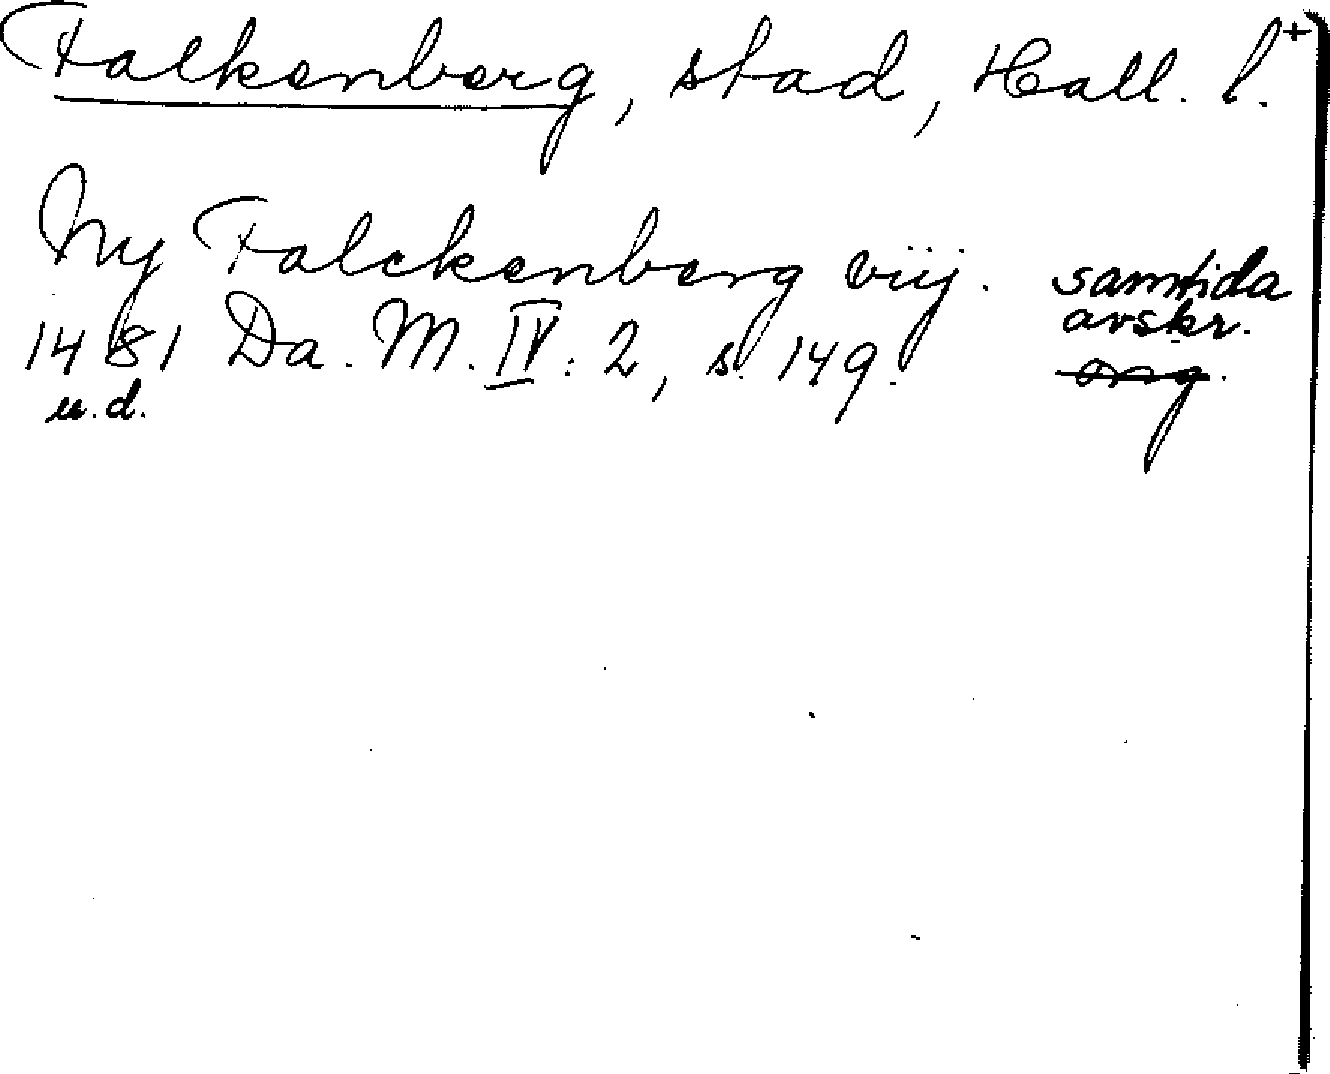 Falkenberg, stad, Hall. l. +
Ny Falckenberg viij. samtida
avskr.
1481 Da. M. IV: 2, s. 149. orig.
u.d.